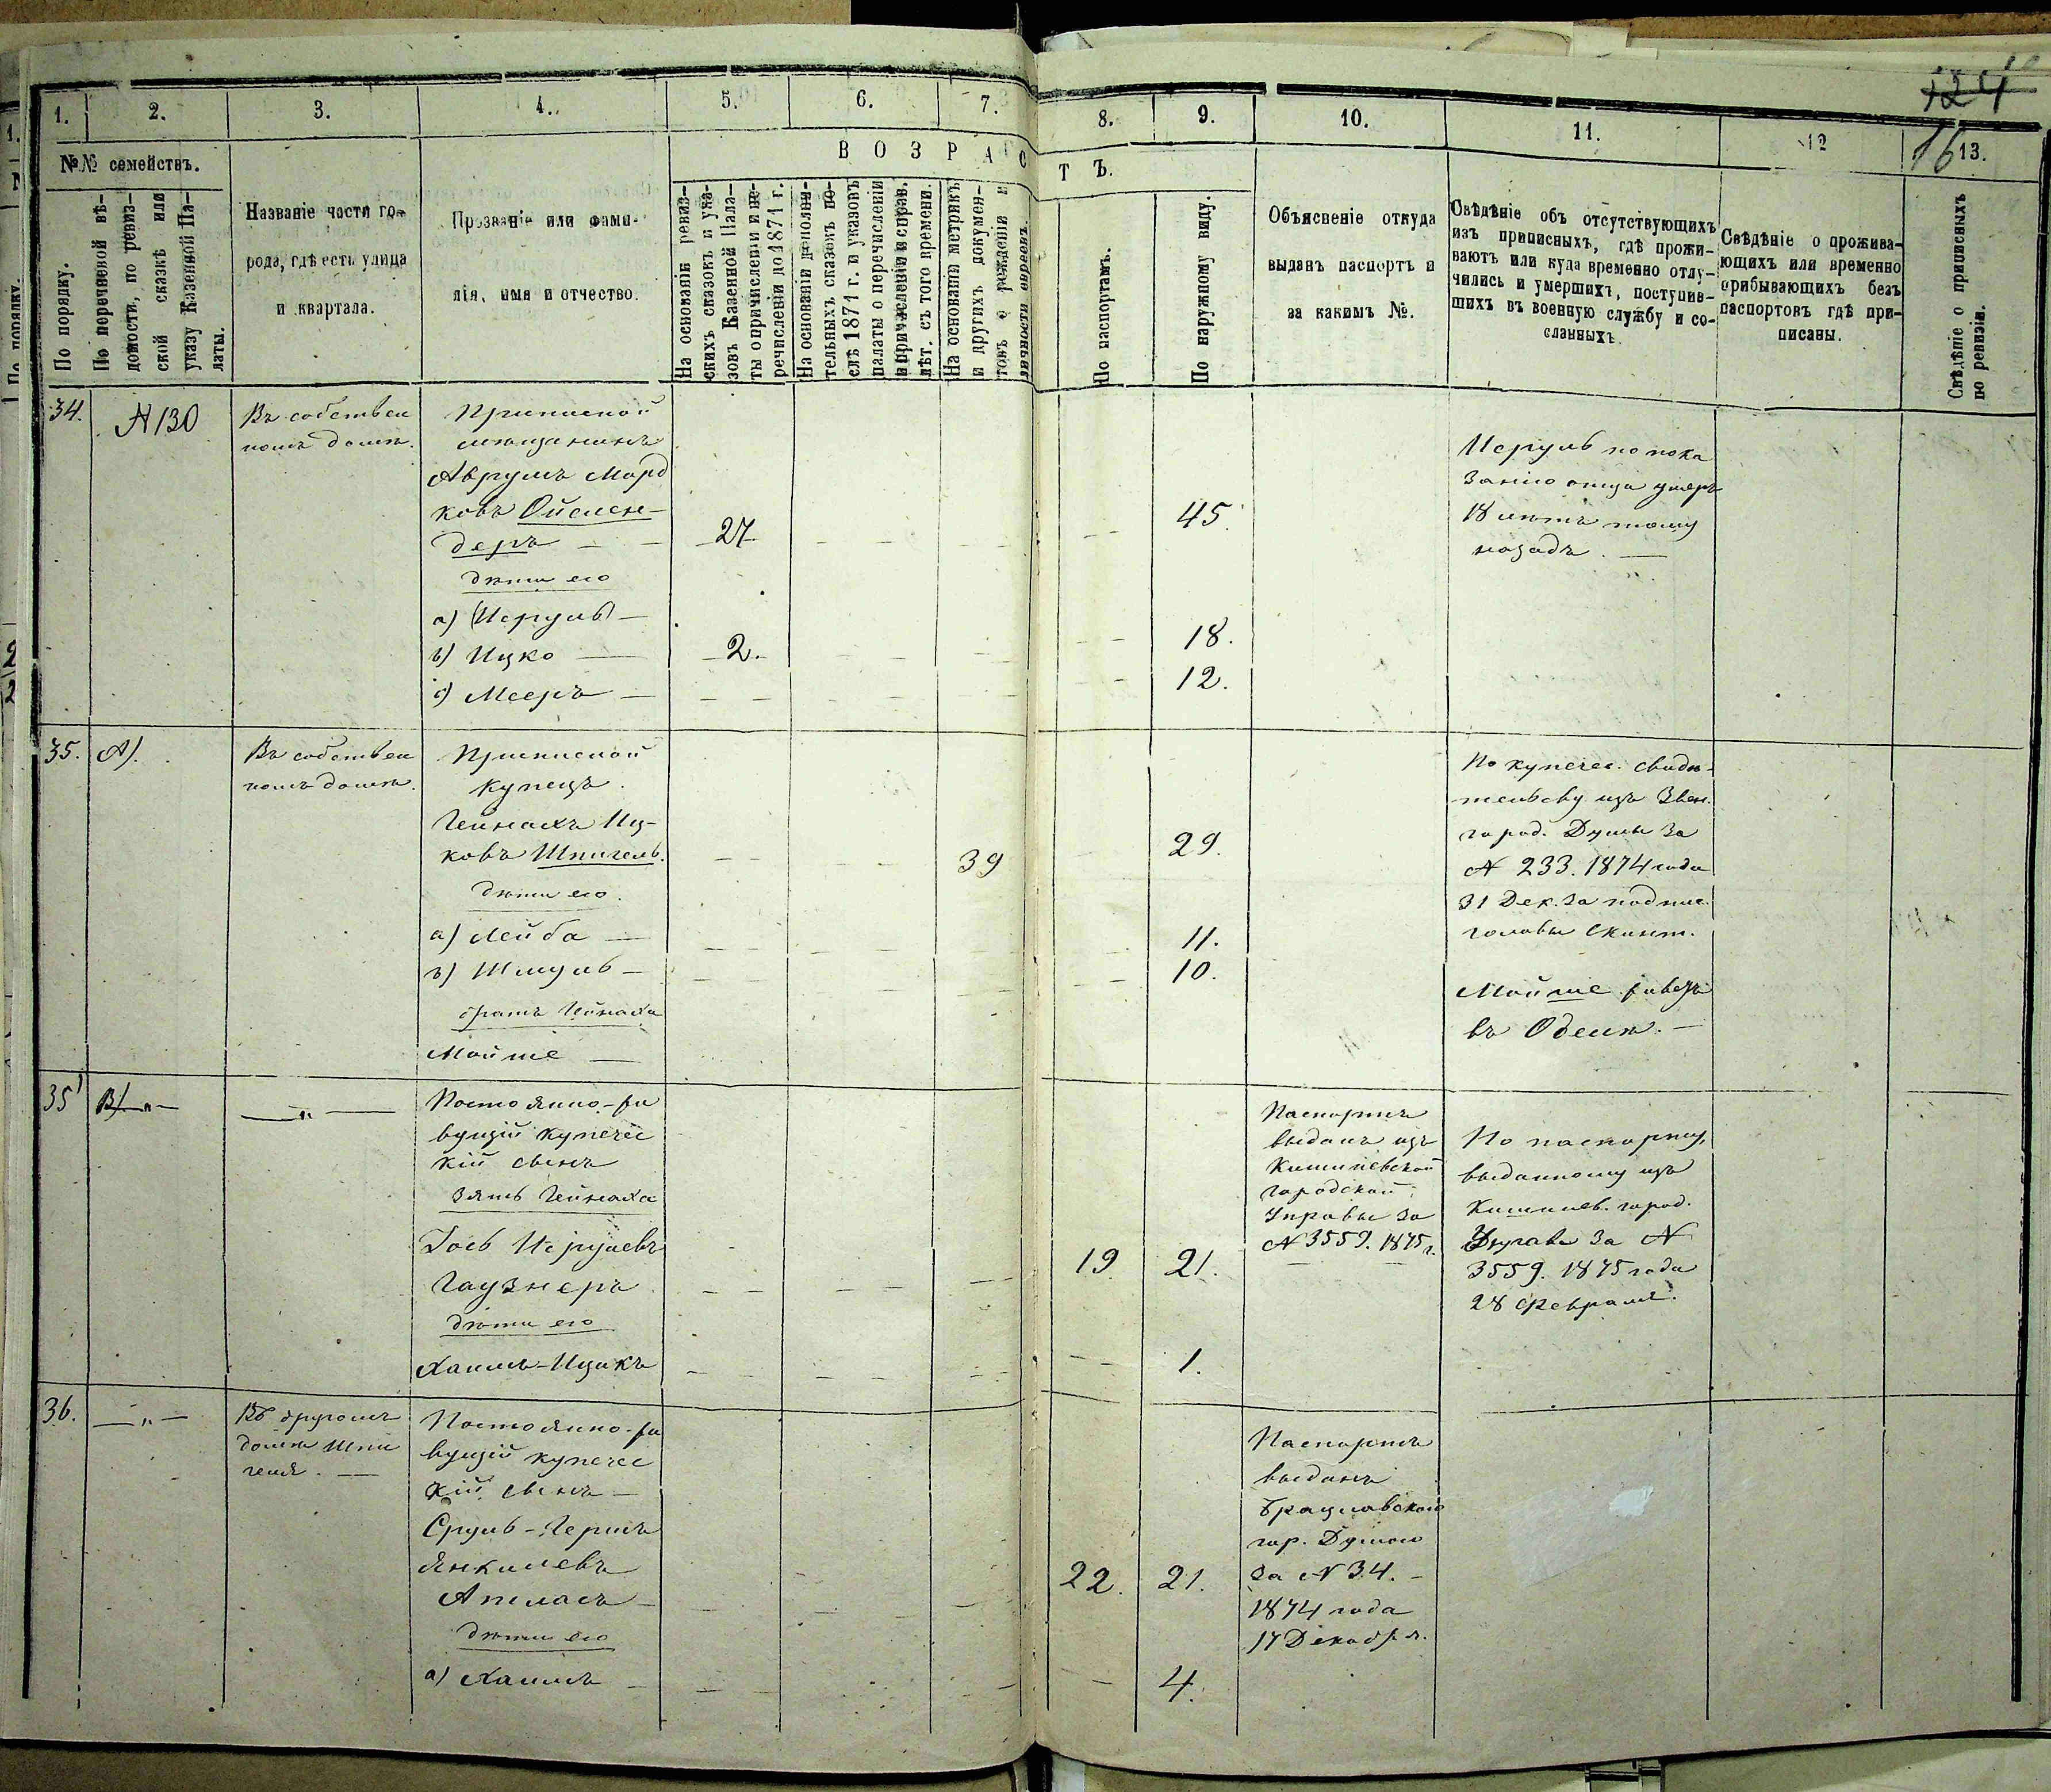 124
16
1.
2.
3.
4.
5.
6.
7.
8.
9.
10.
11.
12
13.
№№ семействъ.
ВОЗРАСТЪ.
По порядку.
По перечневой вѣ-
домости, по ревиз-
ской сказкѣ или
указу Казенной Па-
латы.
Названіе части го-
рода, гдѣ есть улица
и квартала.
Прозваніе или фами-
лія, имя и отчество.
На основаніи ревиз-
скихъ сказокъ и ука-
зовъ Казенной Пала-
ты о причисленіи и пе-
речисленіи до 1871 г.
На основаніи дополни-
тельныхъ сказокъ по-
слѣ 1871 г. и указовъ
палаты о перечисленіи
и причисленіи и справ.
лѣт. съ того времени.
На основаніи метрикъ
и другихъ докумен-
товъ о рожденіи и
личности евреевъ.
По паспортамъ.
По наружному виду.
Объясненіе откуда
выданъ паспортъ и
за какимъ №.
Свѣдѣніе объ отсутствующихъ
изъ приписныхъ, гдѣ прожи-
ваютъ или куда временно отлу-
чились и умершихъ, поступив-
шихъ въ военную службу и со-
сланныхъ
Свѣдѣніе о прожива-
ющихъ или временно
прибывающихъ безъ
паспортовъ гдѣ при-
писаны.
Свѣдѣніе о приписныхъ
по ревизіи.
34.
№ 130
Въ собствен
номъ домѣ.
Приписной
мѣщанинъ
Аврумъ Морд
ковъ Ойслен-
деръ — 27 45
дѣти его
а) (Исруль) —
в) Ицко — 2. 18.
с) Мееръ — 12.
Исруль по пока
занію отца умеръ
18 лѣтъ тому
назадъ. —
35.
А).
Въ собствен
номъ домѣ.
Приписной
купецъ.
Гейнахъ Иц-
ковъ Шпигель. 39 29.
дѣти его.
а) Лейба — 11.
в) Шмуль — 10.
братъ Гейнаха
Мойше —
По купечес. свидѣ-
тельству изъ Звен.
город. Думы за
№ 233. 1874 года
31 Дек. за подпис.
головы
Мойше живетъ
въ Одессѣ. —
35
В) —„—
—„—
Постоянно-жи
вущій купечес
кій сынъ
зять Гейнаха
Іось Исрулевъ
Гаузнеръ 19 21.
дѣти его
Хаимъ-Ицикъ 1.
Паспортъ
выданъ изъ
Кишиневской
городской
Управы за
№ 3559. 1875 г.
По паспорту,
выданному изъ
Кишинев. город.
Управы за №
3559. 1875 года
28 Февраля.
36.
—„—
Въ другомъ
домѣ Шпи
геля. —
Постоянно-жи
вущій купечес
кій сынъ —
Сруль-Гершъ
Янкилевъ
Апеласъ 22. 21.
дѣти его
а) Хаимъ — 4.
Паспортъ
выданъ
Брацлавскою
гор. Думою
за № 34. —
1874 года
17 Декабря.